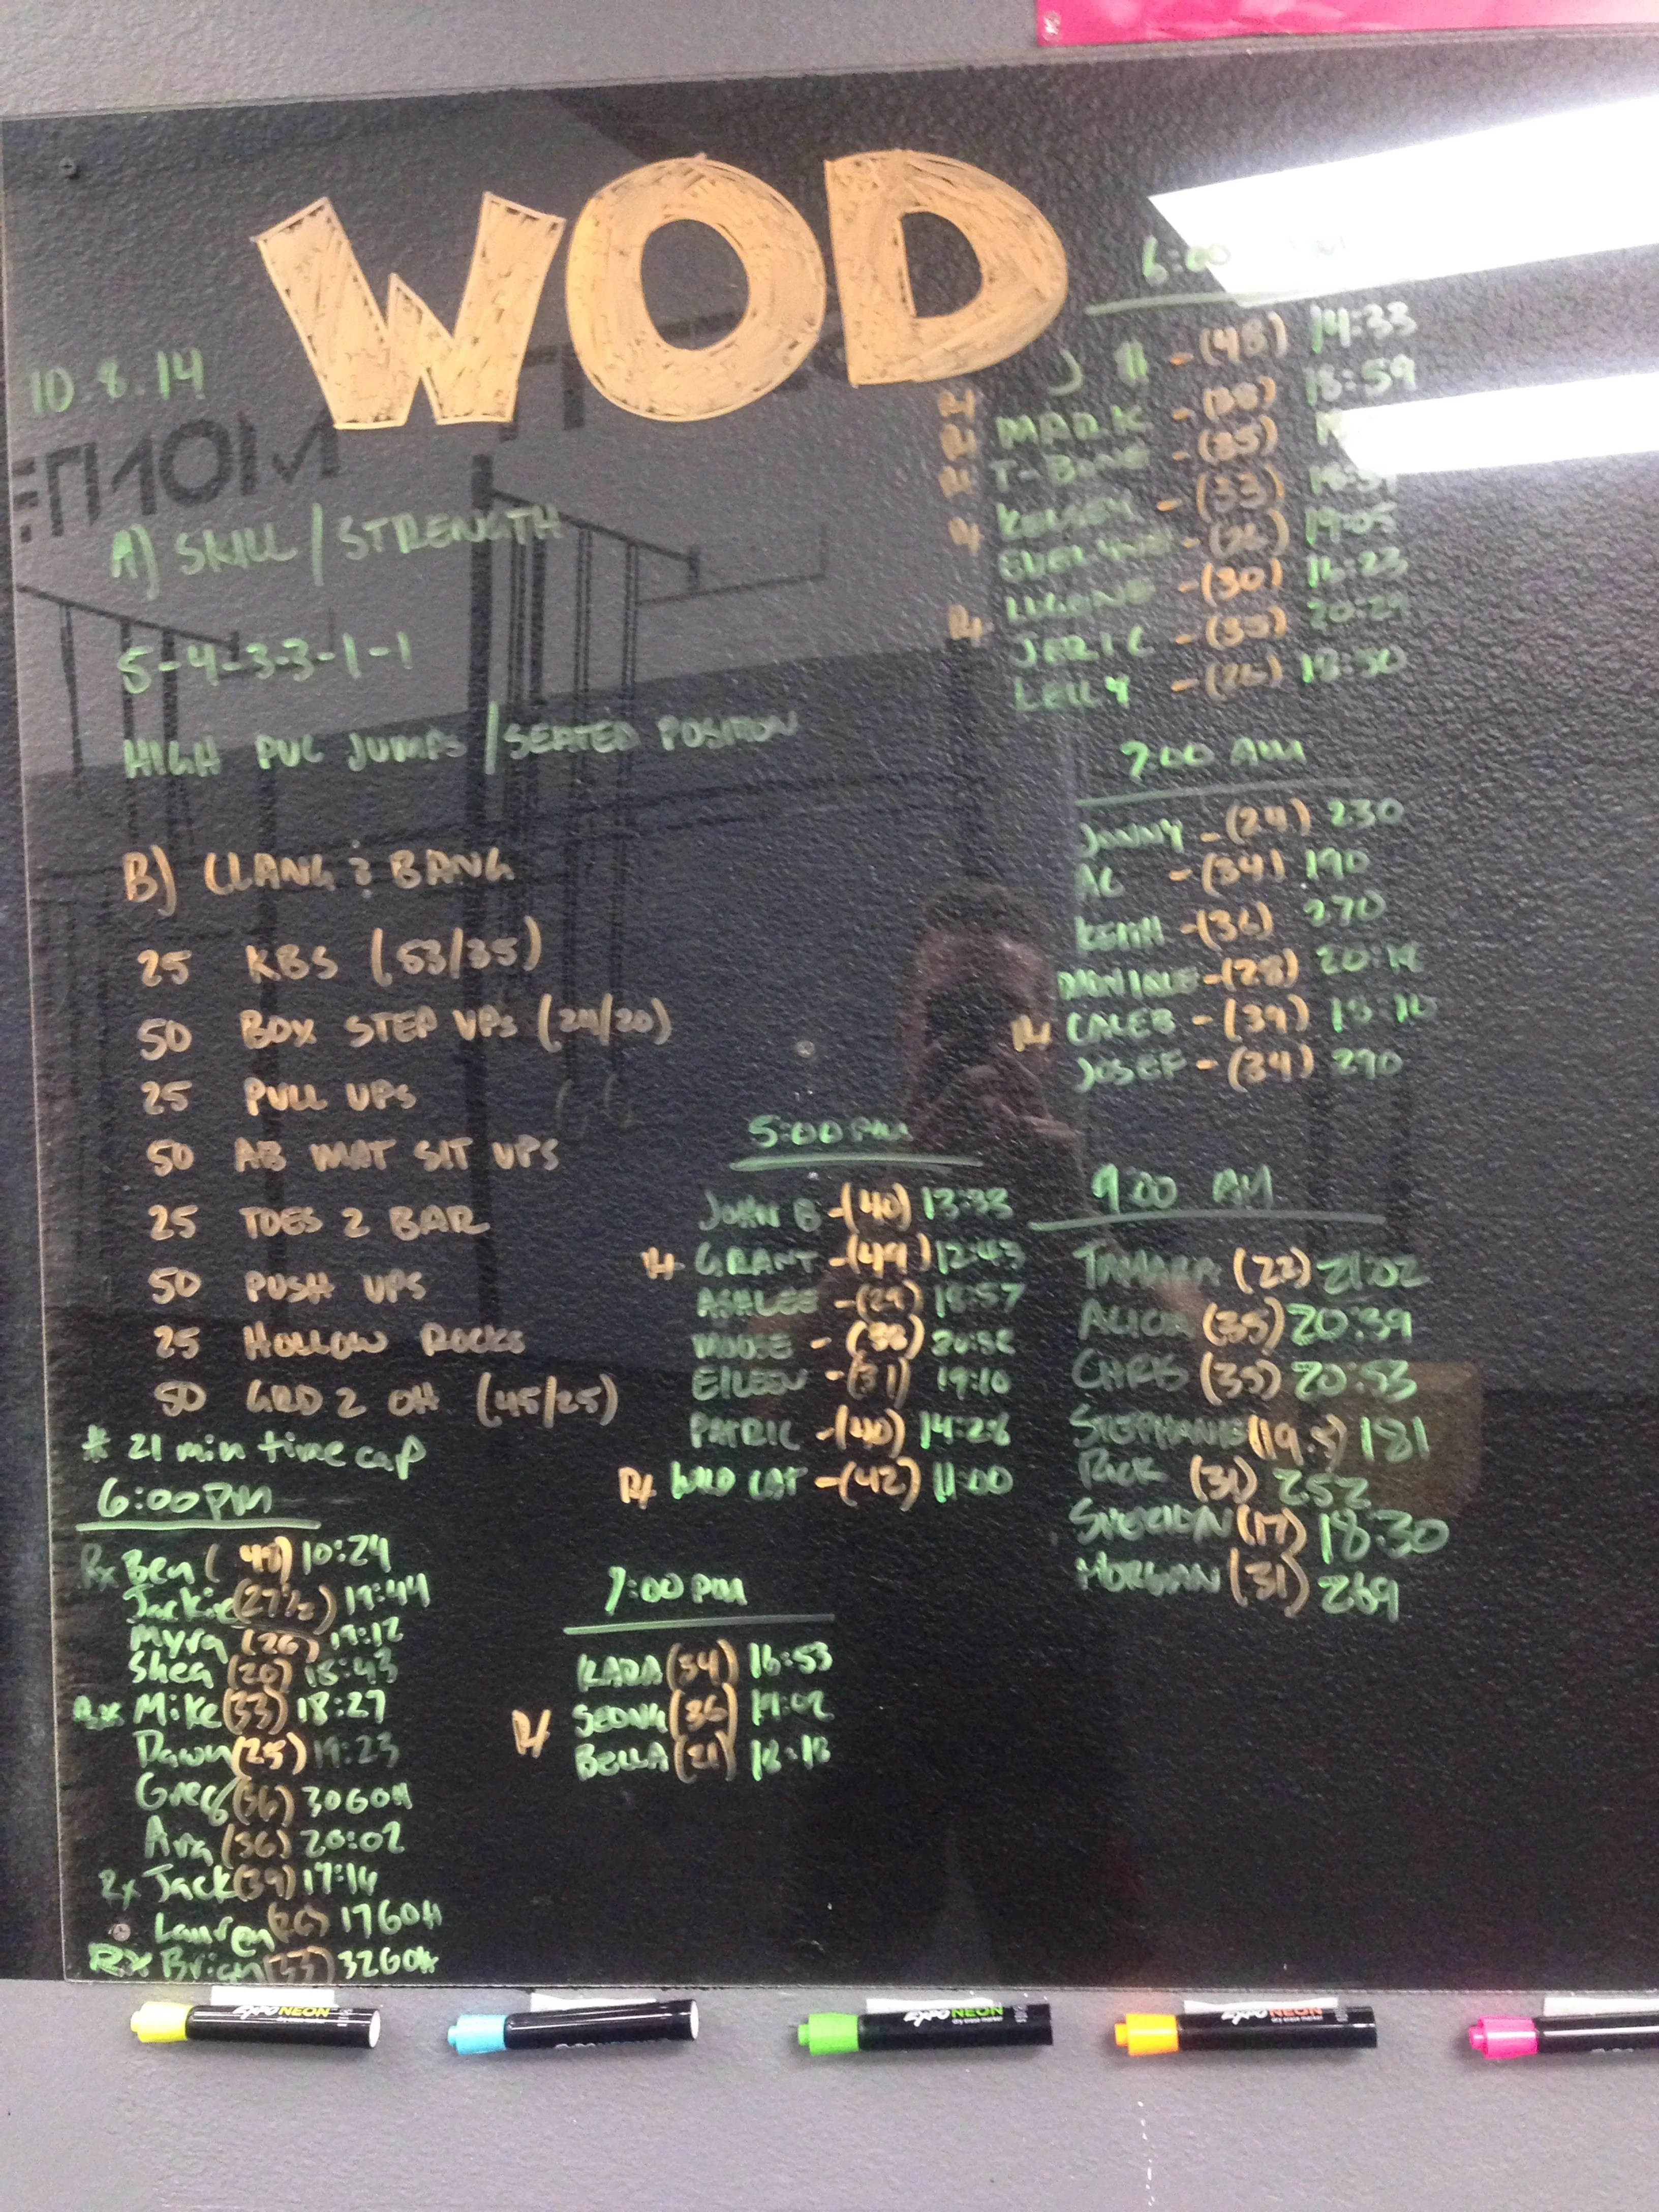 WOD
10.8.14
A) SKILL / STRENGTH
5-4-3-3-1-1
HIGH PVC JUMPS / SEATED POSITION
B) CLANG & BANG
25 KBS (53/35)
50 BOX STEP UPS (24/20)
25 PULL UPS
50 AB MAT SIT UPS
25 TOES 2 BAR
50 PUSH UPS
25 HOLLOW ROCKS
50 GRD 2 OH (45/25)
* 21 min time cap
6:00PM
Rx Ben (49) 10:24
Jackie (27½) 19:44
Myra (26) 19:12
Shea (20) 18:43
Rx Mike (33) 18:27
Dawn (25) 19:23
Greg (36) 306OH
Ara (36) 20:02
Rx Jack (39) 17:16
Lauren (26) 176OH
Rx Brian (33) 326OH
5:00PM
JOHN B - (40) 13:33
Rx GRANT - (49) 12:43
ASHLEE - (29) 18:57
MOOSE - (38)
EILEEN - (31) 19:10
PATRIC - (40) 14:28
Rx WILD CAT - (42) 11:00
7:00PM
KARA (34) 16:53
Rx SEONG (36) 19:02
BELLA (21) 18:18
6:00
J - (48) 14:33
Rx MARK - (38) 18:59
Rx T-BONE - (35)
Rx KELSEY - (33)
Rx - (26) 19:05
- (30) 16:23
Rx JERIC - (35) 20:29
KELLY - (26) 18:50
7:00 AM
JONNY - (24) 230
AC - (34) 190
KEITH - (36) 270
MONIQUE - (28)
Rx CALEB - (39)
JOSEF - (34) 290
9:00 AM
TAMARA (22) 21:02
ALICIA (35) 20:39
CHRIS (35) 20:53
STEPHANIE (19.5) 181
RICK (31) 252
SHERIDAN (17) 18:30
MORGAN (31) 269
EXPO NEON
dry erase marker
EXPO NEON
dry erase marker
EXPO NEON
dry erase marker